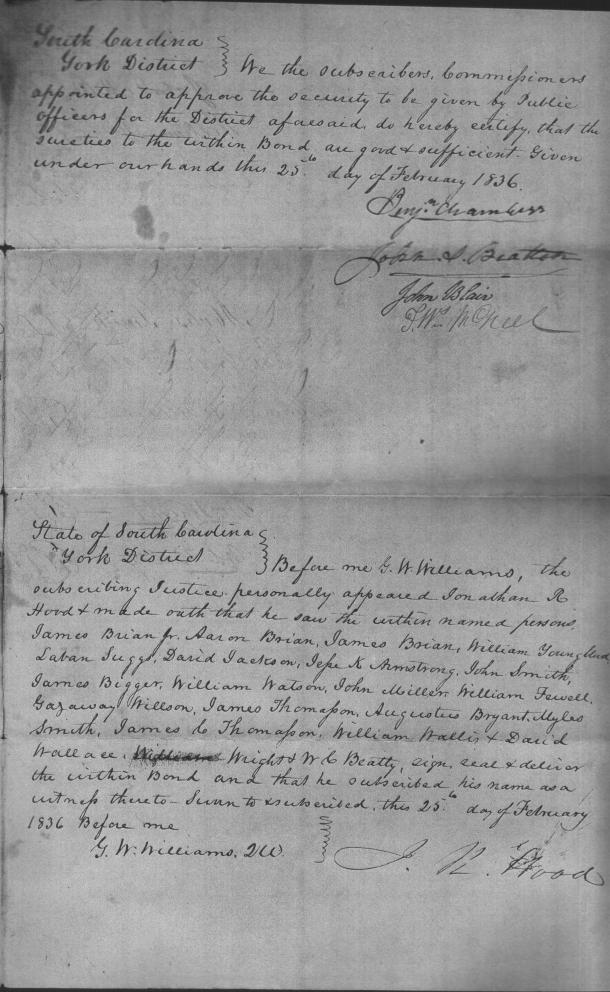 South Carolina
York District } We the subscribers, Commissioners
appointed to approve the security to be given by Public
officers for the District aforesaid, do hereby certify, that the
sureties to the within Bond, are good & sufficient. Given
under our hands this 25th day of February 1836.
Benjn Chambers
John S. Beattey
John Blair
State of South Carolina
York District } Before me G. W Williams, the
subscribing Justice personally appeared Jonathan R
Hood & made oath that he saw the within named persons,
James Brian Jr. Aaron Brian, James Brian, William Youngblood
Laban Suggs, David Jackson, Jesse K Armstrong, John Smith,
James Bigger, William Watson, John Miller, William Fewell,
Gazaway Willson, James Thomasson, Augustus Bryant, Myles
Smith, James C Thomasson, William Wallis & David
Wallace, William Wright & W C Beatty, sign, seal & deliver
the within Bond and that he subscribed his name as a
witness thereto – Sworn to & subscribed, this 25th day of February
1836 Before me
G. W. Williams, QU
J. R. Hood